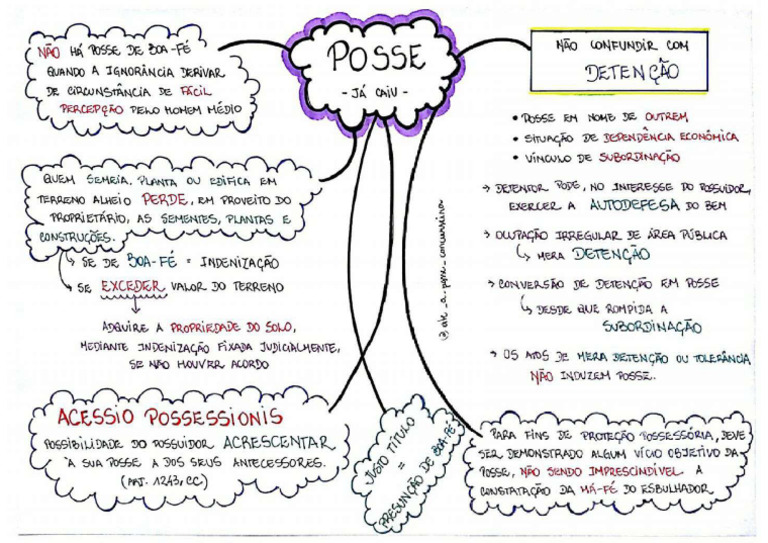 POSSE
- JÁ CAIU -
NÃO HÁ POSSE DE BOA-FÉ
QUANDO A IGNORÂNCIA DERIVAR
DE CIRCUNSTÂNCIA DE FÁCIL
PERCEPÇÃO PELO HOMEM MÉDIO
QUEM SEMEIA, PLANTA OU EDIFICA EM
TERRENO ALHEIO PERDE, EM PROVEITO DO
PROPRIETÁRIO, AS SEMENTES, PLANTAS E
CONSTRUÇÕES.
↳ SE DE BOA-FÉ = INDENIZAÇÃO
↳ SE EXCEDER VALOR DO TERRENO
ADQUIRE A PROPRIEDADE DO SOLO,
MEDIANTE INDENIZAÇÃO FIXADA JUDICIALMENTE,
SE NÃO HOUVER ACORDO
ACESSIO POSSESSIONIS
POSSIBILIDADE DO POSSUIDOR ACRESCENTAR
À SUA POSSE A DOS SEUS ANTECESSORES.
(ART. 1243, CC)
JUSTO TÍTULO
=
PRESUNÇÃO DE BOA-FÉ
NÃO CONFUNDIR COM
DETENÇÃO
• POSSE EM NOME DE OUTREM
• SITUAÇÃO DE DEPENDÊNCIA ECONÔMICA
• VÍNCULO DE SUBORDINAÇÃO
→ DETENTOR PODE, NO INTERESSE DO POSSUIDOR,
EXERCER A AUTODEFESA DO BEM
→ OCUPAÇÃO IRREGULAR DE ÁREA PÚBLICA
↳ MERA DETENÇÃO
→ CONVERSÃO DE DETENÇÃO EM POSSE
↳ DESDE QUE ROMPIDA A
SUBORDINAÇÃO
→ OS ATOS DE MERA DETENÇÃO OU TOLERÂNCIA
NÃO INDUZEM POSSE.
PARA FINS DE PROTEÇÃO POSSESSÓRIA, DEVE
SER DEMONSTRADO ALGUM VÍCIO OBJETIVO DA
POSSE, NÃO SENDO IMPRESCINDÍVEL A
CONSTATAÇÃO DA MÁ-FÉ DO ESBULHADOR